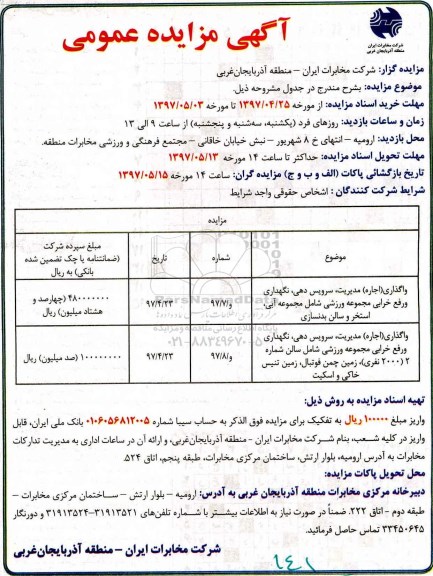 شرکت مخابرات ایران
منطقه آذربایجان غربی
آگهی مزایده عمومی
مزایده گزار: شرکت مخابرات ایران – منطقه آذربایجان‌غربی
موضوع مزایده: بشرح مندرج در جدول مشروحه ذیل.
مهلت خرید اسناد مزایده: از مورخه ۱۳۹۷/۰۴/۲۵ تا مورخه ۱۳۹۷/۰۵/۰۳
زمان و ساعات بازدید: روزهای فرد (یکشنبه، سه‌شنبه و پنجشنبه) از ساعت ۹ الی ۱۳
محل بازدید: ارومیه – انتهای خ ۸ شهریور – نبش خیابان خاقانی – مجتمع فرهنگی و ورزشی مخابرات منطقه.
مهلت تحویل اسناد مزایده: حداکثر تا ساعت ۱۴ مورخه ۱۳۹۷/۰۵/۱۳
تاریخ بازگشائی پاکات (الف و ب و ج) مزایده گران: ساعت ۱۴ مورخه ۱۳۹۷/۰۵/۱۵
شرایط شرکت کنندگان : اشخاص حقوقی واجد شرایط
مزایده
موضوع شماره تاریخ مبلغ سپرده شرکت (ضمانتنامه یا چک تضمین شده بانکی) به ریال
واگذاری(اجاره) مدیریت، سرویس دهی، نگهداری ورفع خرابی مجموعه ورزشی شامل مجموعه آبی، استخر و سالن بدنسازی و/۹۷/۷ ۹۷/۴/۲۳ ۴۸۰۰۰۰۰۰۰ (چهارصد و هشتاد میلیون) ریال
واگذاری(اجاره) مدیریت، سرویس دهی، نگهداری ورفع خرابی مجموعه ورزشی شامل سالن شماره ۲ (۲۰۰۰ نفری)، زمین چمن فوتبال، زمین تنیس خاکی و اسکیت و/۹۷/۸ ۹۷/۴/۲۳ ۱۰۰۰۰۰۰۰۰ (صد میلیون) ریال
ParsNamadData
پایگاه اطلاع رسانی مناقصه و مزایده
۰۲۱-۸۸۳۴۹۶۷۰-۵
تهیه اسناد مزایده به روش ذیل:
واریز مبلغ ۱۰۰۰۰۰ ریال به تفکیک برای مزایده فوق الذکر به حساب سیبا شماره ۰۱۰۶۰۵۶۸۱۲۰۰۵ بانک ملی ایران، قابل
واریز در کلیه شعب، بنام شرکت مخابرات ایران – منطقه آذربایجان‌غربی، و ارائه آن در ساعات اداری به مدیریت تدارکات
مخابرات به آدرس ارومیه، بلوار ارتش، ساختمان مرکزی مخابرات، طبقه پنجم، اتاق ۵۲۴.
محل تحویل پاکات مزایده:
دبیرخانه مرکزی مخابرات منطقه آذربایجان غربی به آدرس: ارومیه – بلوار ارتش – ساختمان مرکزی مخابرات –
طبقه دوم – اتاق ۲۲۲. ضمناً در صورت نیاز به اطلاعات بیشتر با شماره تلفن‌های ۳۱۹۱۳۵۲۱–۳۱۹۱۳۵۲۴ و دورنگار
۳۳۴۵۰۶۴۵ تماس حاصل فرمائید.
شرکت مخابرات ایران – منطقه آذربایجان‌غربی